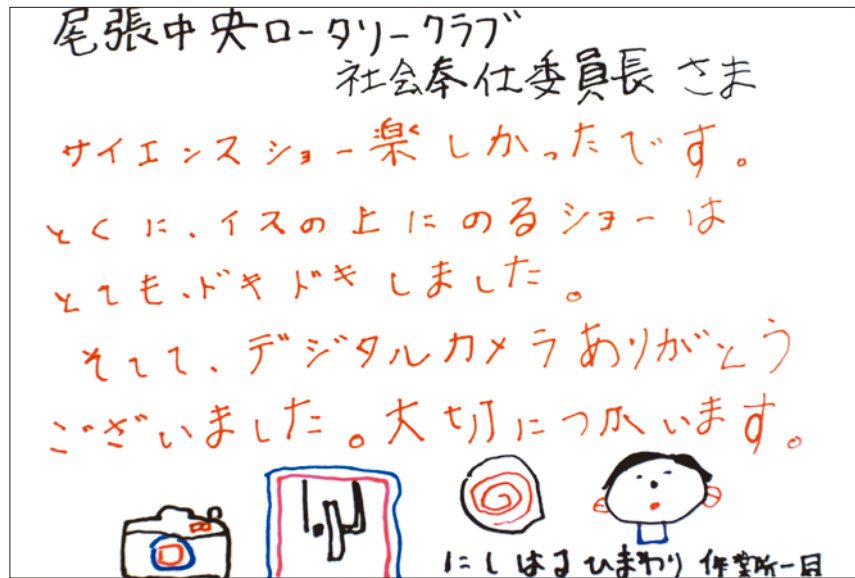 尾張中央ロータリークラブ
社会奉仕委員長さま
サイエンスショー楽しかったです。
とくに、イスの上にのるショーは
とても、ドキドキしました。
そして、デジタルカメラありがとう
ございました。大切につかいます。
にしはるひまわり作業所一同